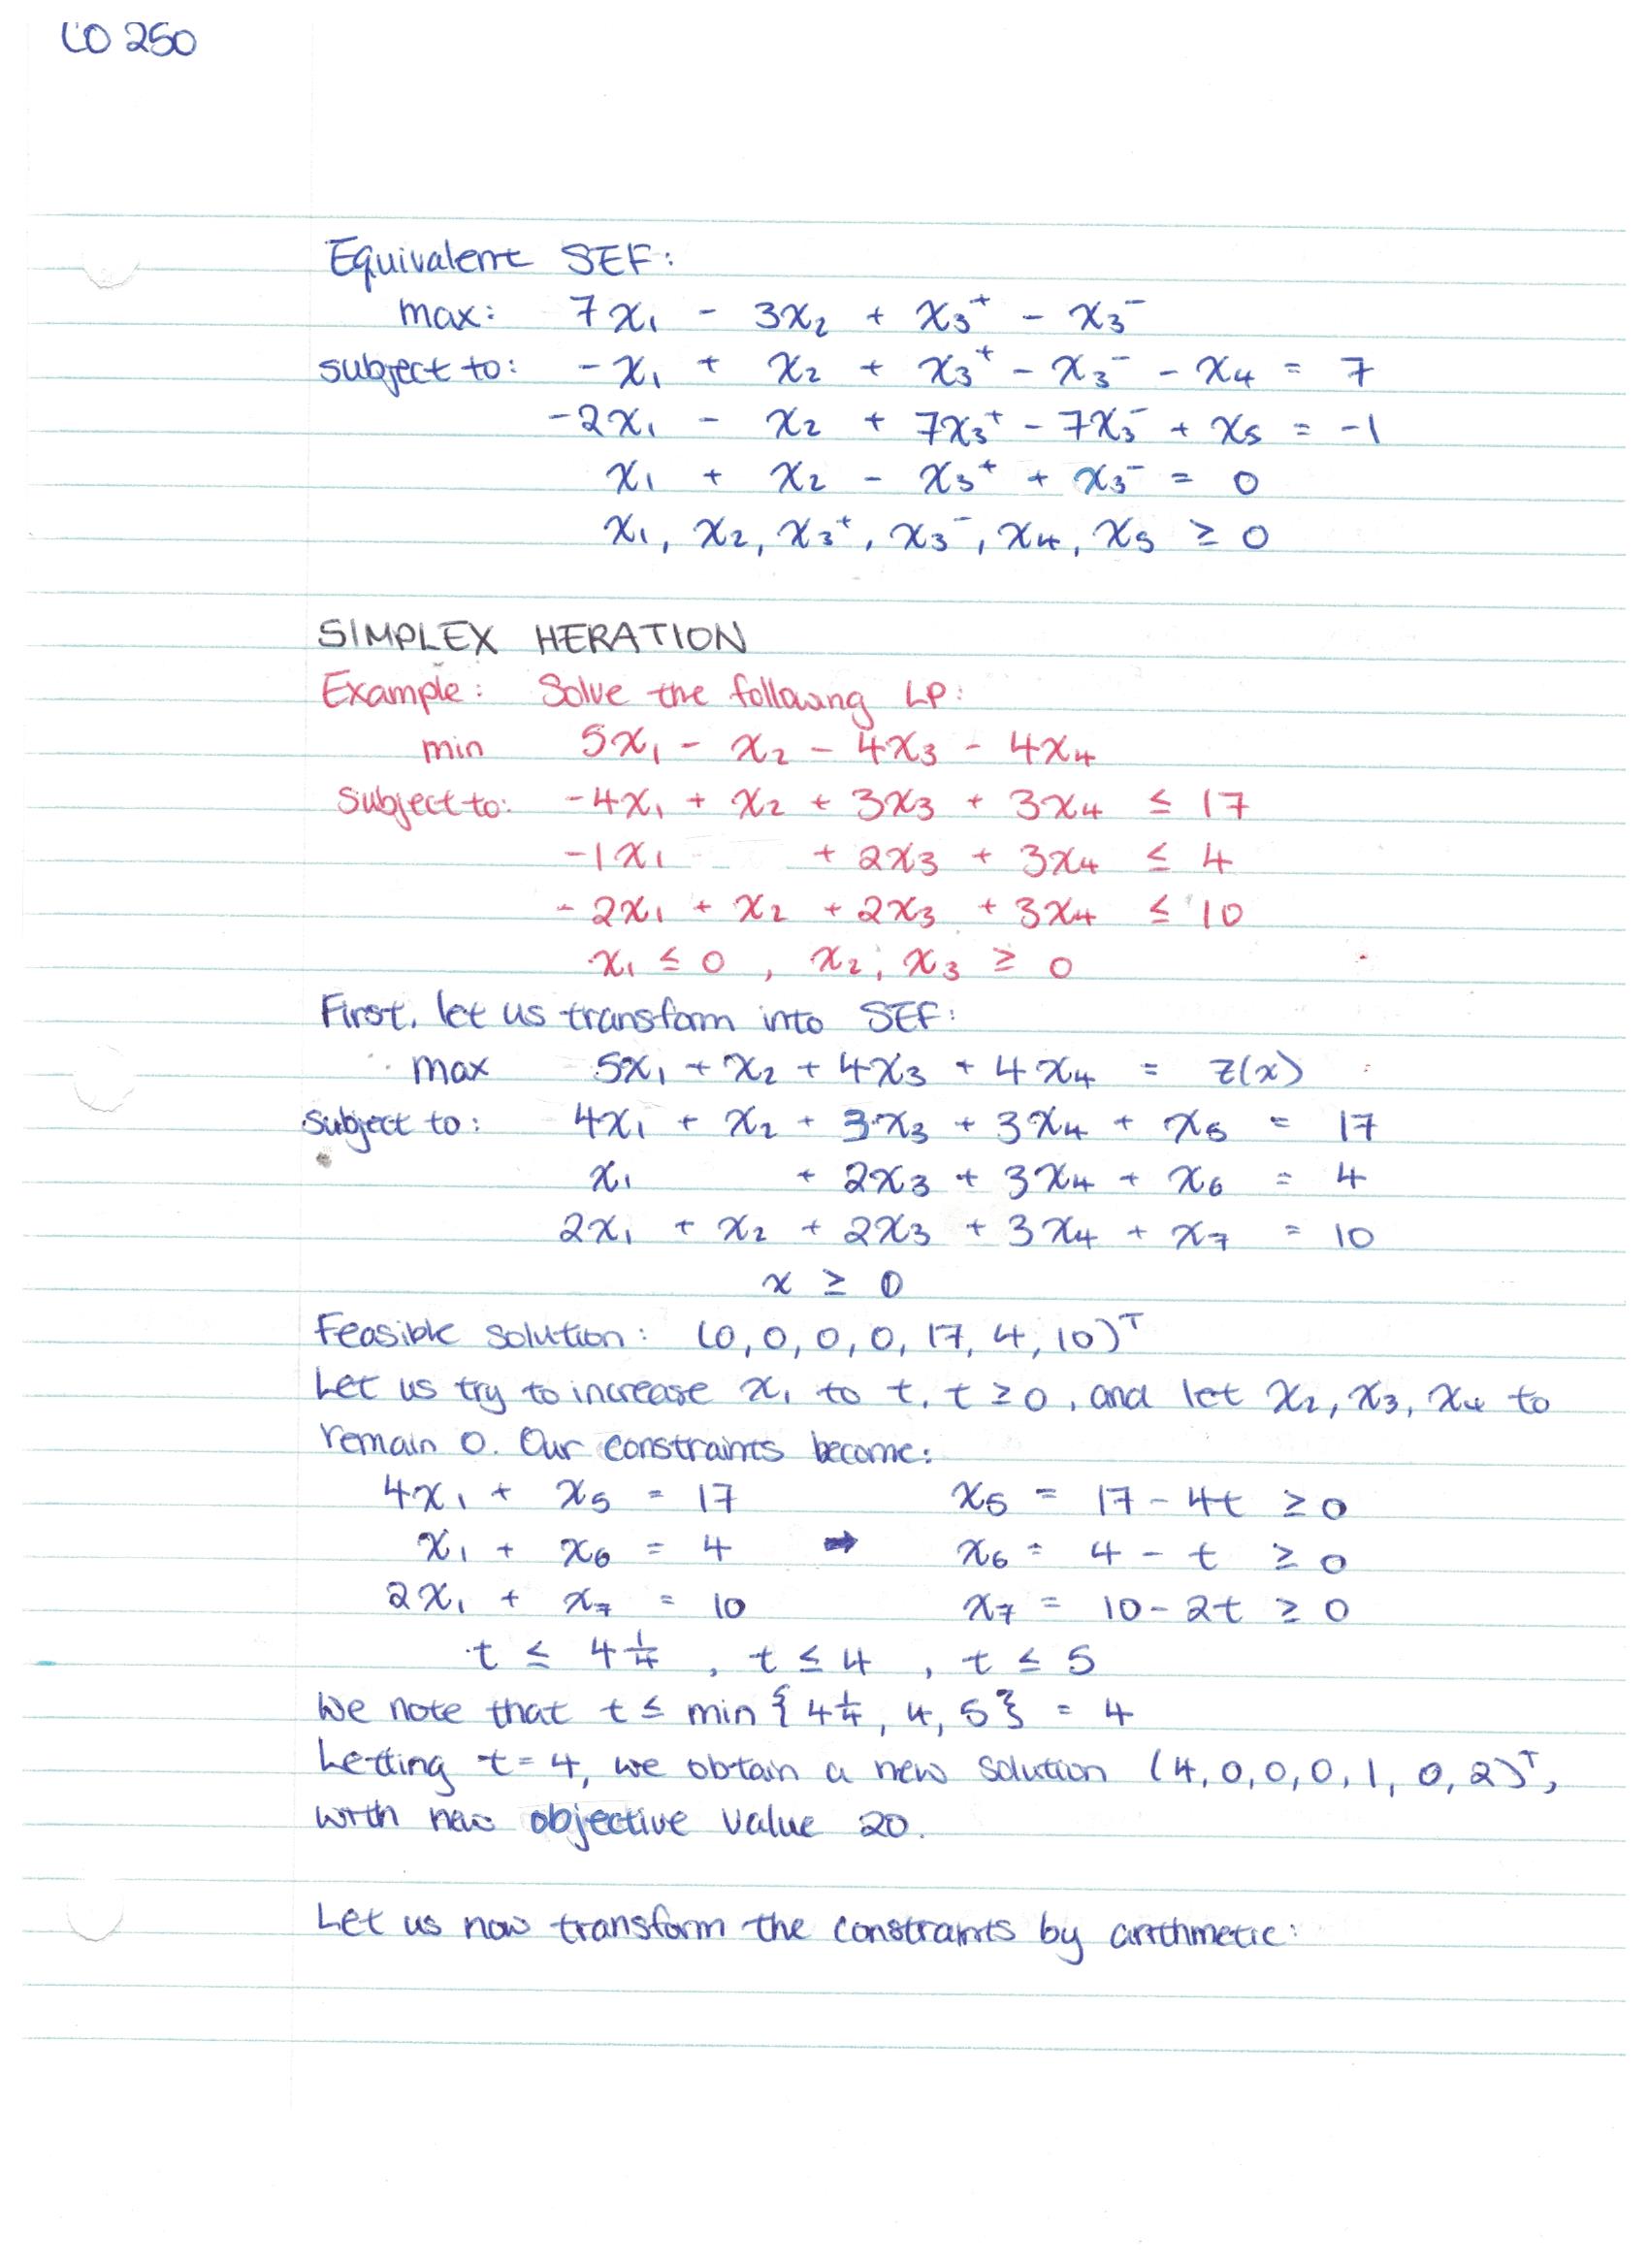 CO 250
Equivalent SEF:
max: 7x₁ - 3x₂ + x₃⁺ - x₃⁻
subject to: -x₁ + x₂ + x₃⁺ - x₃⁻ - x₄ = 7
-2x₁ - x₂ + 7x₃⁺ - 7x₃⁻ + x₅ = -1
x₁ + x₂ - x₃⁺ + x₃⁻ = 0
x₁, x₂, x₃⁺, x₃⁻, x₄, x₅ ≥ 0
SIMPLEX ITERATION
Example: Solve the following LP:
min 5x₁ - x₂ - 4x₃ - 4x₄
Subject to: -4x₁ + x₂ + 3x₃ + 3x₄ ≤ 17
-1x₁ + 2x₃ + 3x₄ ≤ 4
-2x₁ + x₂ + 2x₃ + 3x₄ ≤ 10
x₁ ≤ 0, x₂, x₃ ≥ 0
First, let us transform into SEF:
max 5x₁ + x₂ + 4x₃ + 4x₄ = z(x)
Subject to: 4x₁ + x₂ + 3x₃ + 3x₄ + x₅ = 17
x₁ + 2x₃ + 3x₄ + x₆ = 4
2x₁ + x₂ + 2x₃ + 3x₄ + x₇ = 10
x ≥ 0
Feasible solution: (0, 0, 0, 0, 17, 4, 10)ᵀ
Let us try to increase x₁ to t, t ≥ 0, and let x₂, x₃, x₄ to
remain 0. Our constraints become:
4x₁ + x₅ = 17 x₅ = 17 - 4t ≥ 0
x₁ + x₆ = 4 ➡ x₆ = 4 - t ≥ 0
2x₁ + x₇ = 10 x₇ = 10 - 2t ≥ 0
t ≤ 4¼, t ≤ 4, t ≤ 5
We note that t ≤ min {4¼, 4, 5} = 4
Letting t = 4, we obtain a new solution (4, 0, 0, 0, 1, 0, 2)ᵀ,
with new objective value 20.
Let us now transform the constraints by arithmetic: